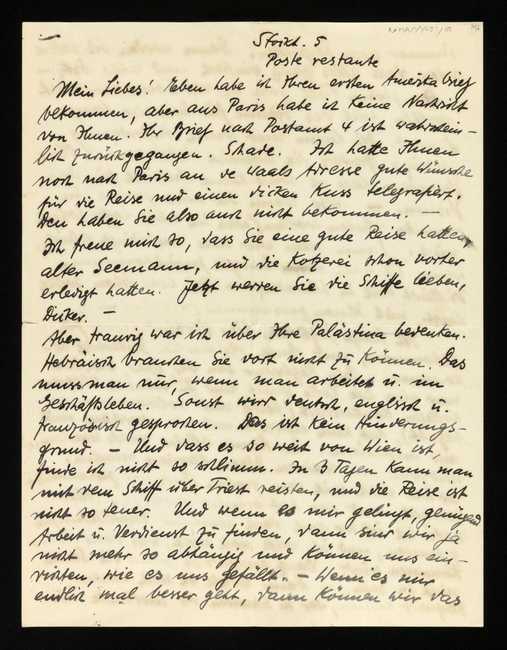 Stockh. 5
Poste restante
Mein Liebes! Eben habe ich Ihren ersten Amerika brief
bekommen, aber aus Paris habe ich keine Nachricht
von Ihnen. Ihr Brief nach Postamt 4 ist wahrschein-
lich zurückgegangen. Schade. Ich hatte Ihnen
noch nach Paris an de waals Adresse gute Wünsche
für die Reise und einen dicken Kuss telegrafiert.
Den haben Sie also auch nicht bekommen. —
Ich freue mich so, dass Sie eine gute Reise hatten,
alter Seemann, und die Kotzerei schon vorher
erledigt hatten. Jetzt werden Sie die Schiffe lieben,
Dicker. —
Aber traurig war ich über Ihre Palästina bedenken.
Hebräisch brauchen Sie dort nicht zu können. Das
muss man nur, wenn man arbeitet u. im
Geschäftsleben. Sonst wird deutsch, englisch u.
französisch gesprochen. Das ist kein Hinderungs-
grund. — Und dass es so weit von Wien ist,
finde ich nicht so schlimm. In 3 Tagen kann man
mit dem Schiff über Triest reisten, und die Reise ist
nicht so teuer. Und wenn es mir gelingt, genügend
Arbeit u. Verdienst zu finden, dann sind wir ja
nicht mehr so abhängig und können uns ein-
richten, wie es uns gefällt. — Wenn es mir
endlich mal besser geht, dann können wir das